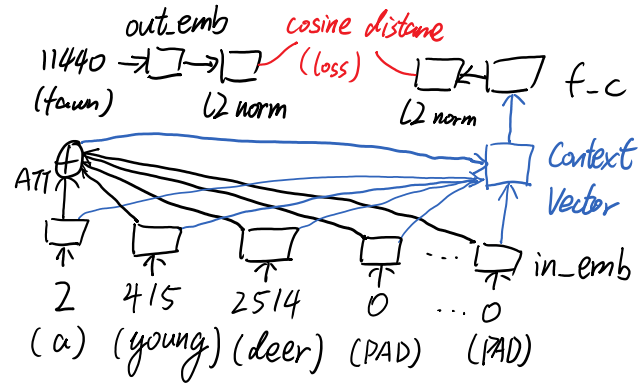 out_emb
cosine distane
(loss)
11440
(fawn)
L2 norm
L2 norm
f_c
ATT
+
Context
Vector
in_emb
2 415 2514 0 ... 0
(a) (young) (deer) (PAD) (PAD)